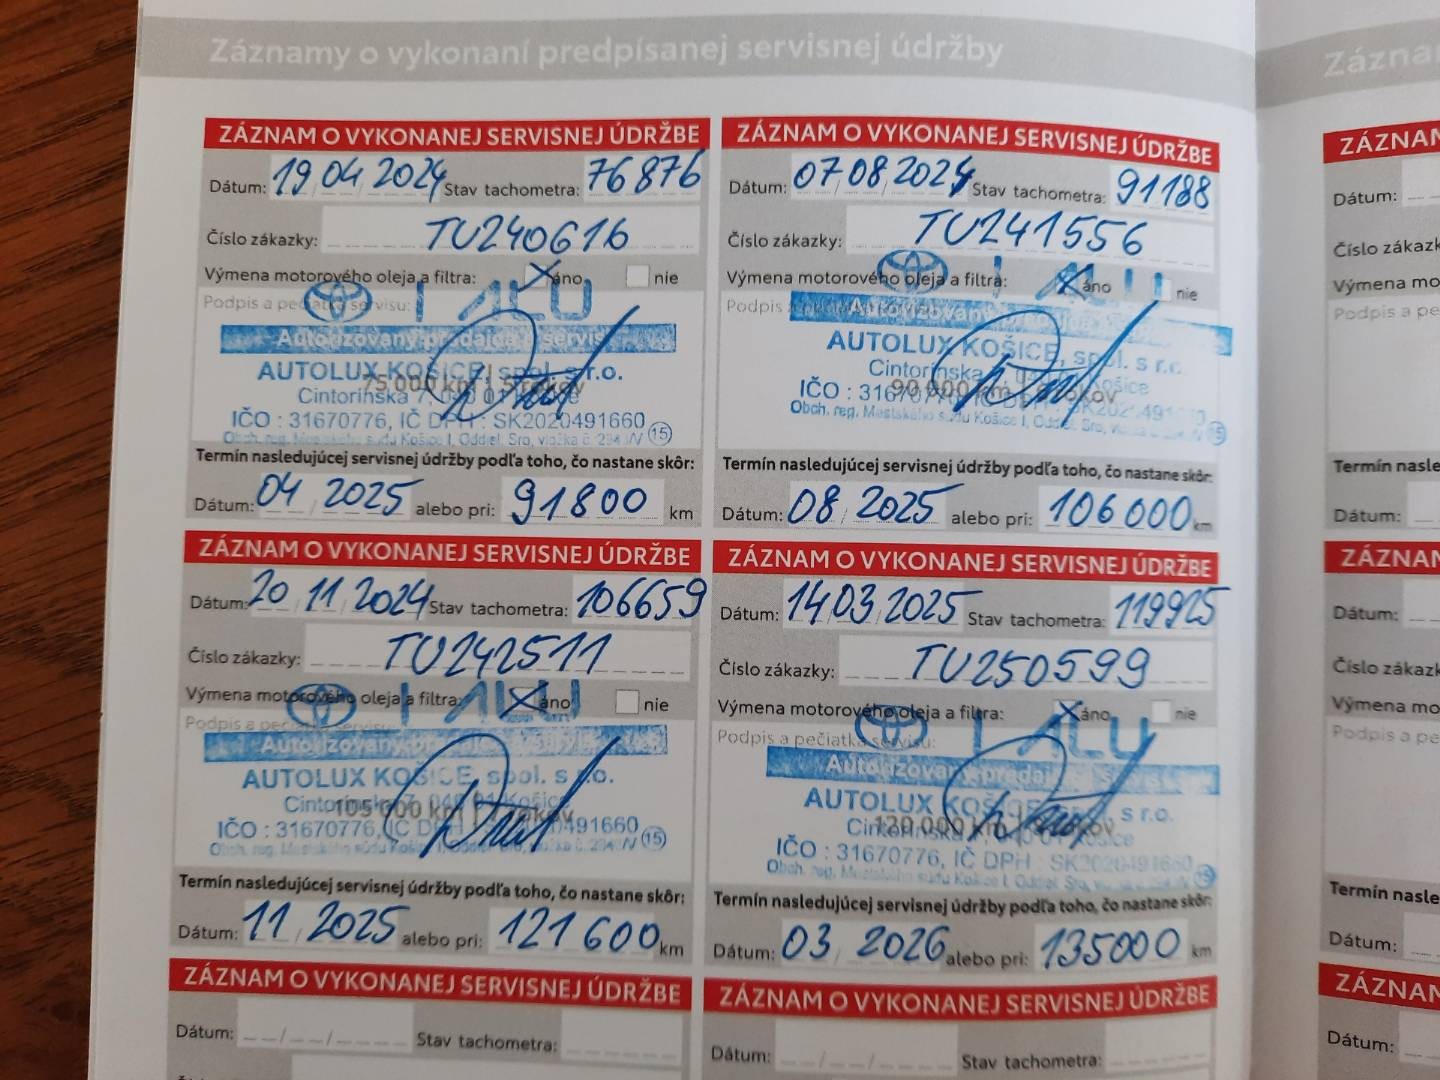 Záznamy o vykonaní predpísanej servisnej údržby
Zázna
ZÁZNAM O VYKONANEJ SERVISNEJ ÚDRŽBE
Dátum: 19 04 2024 Stav tachometra: 76876
Číslo zákazky: TU240616
Výmena motorového oleja a filtra: áno nie
Podpis a pečiatka servisu:
Autorizovaný predajca a servis
AUTOLUX KOŠICE, spol. s r.o.
75 000 km | 5 rokov
Cintorínska 7, 040 01 Košice
IČO : 31670776, IČ DPH : SK2020491660
Obch. reg. Mestského súdu Košice I, Oddiel. Sro, vložka č. 15
Termín nasledujúcej servisnej údržby podľa toho, čo nastane skôr:
Dátum: 04 / 2025 alebo pri: 91800 km
ZÁZNAM O VYKONANEJ SERVISNEJ ÚDRŽBE
Dátum: 07 08 2024 Stav tachometra: 91188
Číslo zákazky: TU241556
Výmena motorového oleja a filtra: áno nie
Podpis a
Autorizovaný
AUTOLUX KOŠICE, spol. s r.o.
Cintorínska Košice
90 000 km rokov
IČO : 31670776, IČ DPH
Obch. reg. Mestského súdu Košice I, Oddiel. Sro, 15
Termín nasledujúcej servisnej údržby podľa toho, čo nastane skôr:
Dátum: 08 / 2025 alebo pri: 106000 km
ZÁZNAM O VYKONANEJ SERVISNEJ ÚDRŽBE
Dátum: 20 11 2024 Stav tachometra: 106659
Číslo zákazky: TU242511
Výmena motorového oleja a filtra: áno nie
Podpis a pečiatka servisu:
Autorizovaný
AUTOLUX KOŠICE, spol. s r.o.
Cintorínska 7, 040 01 Košice
105 000 km | 7 rokov
IČO : 31670776, IČ DPH : SK2020491660
Obch. reg. Mestského súdu Košice I, 15
Termín nasledujúcej servisnej údržby podľa toho, čo nastane skôr:
Dátum: 11 / 2025 alebo pri: 121600 km
ZÁZNAM O VYKONANEJ SERVISNEJ ÚDRŽBE
Dátum: 14 03 2025 Stav tachometra: 119925
Číslo zákazky: TU250599
Výmena motorového oleja a filtra: áno nie
Podpis a pečiatka servisu:
Autorizovaný predaj
AUTOLUX KOŠICE s r.o.
Cintorínska 01 Košice
120 000 km rokov
IČO : 31670776, IČ DPH : SK2020491660
Obch. reg. Mestského súdu Košice I, Oddiel. Sro, 15
Termín nasledujúcej servisnej údržby podľa toho, čo nastane skôr:
Dátum: 03 / 2026 alebo pri: 135000 km
ZÁZNAM O VYKONANEJ SERVISNEJ ÚDRŽBE
Dátum: Stav tachometra:
ZÁZNAM O VYKONANEJ SERVISNEJ ÚDRŽBE
Dátum: Stav tachometra:
ZÁZNAM
Dátum:
Číslo zákazk
Výmena mo
Podpis a pe
Termín nasle
Dátum:
ZÁZNAM
Dátum:
Číslo zákazk
Výmena mo
Podpis a pe
Termín nasle
Dátum:
ZÁZNAM
Dátum: